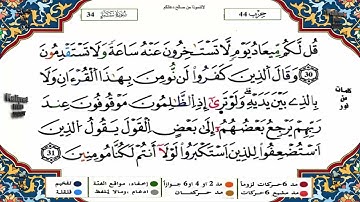 لاتنسونا من صالح دعائكم
34
سورة سبأ
حزب 44
قُل لَّكُم مِّيعَادُ يَوْمٍ لَّا تَسْتَـْٔخِرُونَ عَنْهُ سَاعَةً وَلَا تَسْتَقْدِمُونَ
30 وَقَالَ الَّذِينَ كَفَرُوا لَن نُّؤْمِنَ بِهَٰذَا الْقُرْءَانِ وَلَا
بِالَّذِي بَيْنَ يَدَيْهِ وَلَوْ تَرَىٰ إِذِ الظَّٰلِمُونَ مَوْقُوفُونَ عِندَ
رَبِّهِمْ يَرْجِعُ بَعْضُهُمْ إِلَىٰ بَعْضٍ الْقَوْلَ يَقُولُ الَّذِينَ
اسْتُضْعِفُوا لِلَّذِينَ اسْتَكْبَرُوا لَوْلَا أَنتُمْ لَكُنَّا مُؤْمِنِينَ 31
كلمات من نور
مد 6 حركات لزوماً
مد 2 او 4 او 6 جوازاً
إخفاء، ومواقع الغنة
تفخيم
مد مشبع 6 حركات
مد حركتان
ادغام، ومالا يلفظ
قلقلة